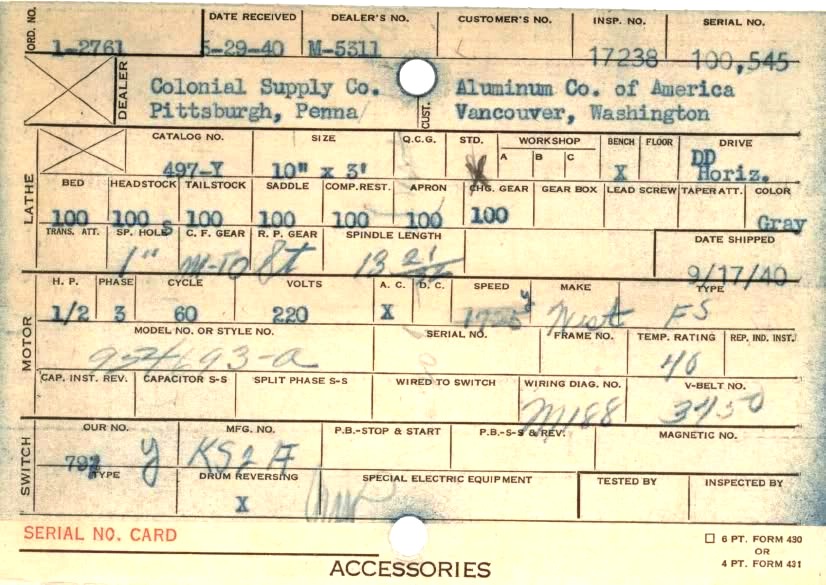 ORD. NO. DATE RECEIVED DEALER'S NO. CUSTOMER'S NO. INSP. NO. SERIAL NO.
1-2761 5-29-40 M-5311 17238 100,545
DEALER Colonial Supply Co. CUST. Aluminum Co. of America
Pittsburgh, Penna Vancouver, Washington
LATHE
CATALOG NO. SIZE Q.C.G. STD. WORKSHOP A B C BENCH FLOOR DRIVE
497-Y 10" x 3' X DD Horiz.
BED HEADSTOCK TAILSTOCK SADDLE COMP.REST. APRON CHG. GEAR GEAR BOX LEAD SCREW TAPER ATT. COLOR
100 100 S 100 100 100 100 100 Gray
TRANS. ATT. SP. HOLE C. F. GEAR R. P. GEAR SPINDLE LENGTH DATE SHIPPED
1" M-TO St 13 9/17/40
MOTOR
H. P. PHASE CYCLE VOLTS A. C. D. C. SPEED MAKE TYPE
1/2 3 60 220 X 1725 y West FS
MODEL NO. OR STYLE NO. SERIAL NO. FRAME NO. TEMP. RATING REP. IND. INST.
934693-a 40
CAP. INST. REV. CAPACITOR S-S SPLIT PHASE S-S WIRED TO SWITCH WIRING DIAG. NO. V-BELT NO.
M188 3450
SWITCH
OUR NO. MFG. NO. P.B.-STOP & START P.B.-S-S & REV. MAGNETIC NO.
y
TYPE DRUM REVERSING SPECIAL ELECTRIC EQUIPMENT TESTED BY INSPECTED BY
X
SERIAL NO. CARD
6 PT. FORM 430
OR
4 PT. FORM 431
ACCESSORIES